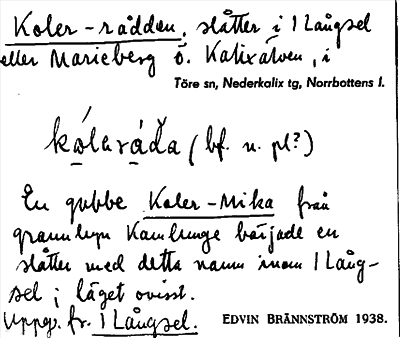 Koler-rådden, slåtter i 1 Långsel
eller Marieberg ö. Kalixälven, i
Töre sn, Nederkalix tg, Norrbottens l.
kólaráda (bf. n. pl?)
En gubbe Koler-Mika från
grannbyn Kamlunge bärjade en
slåtter med detta namn inom 1 Lång-
sel; läget ovisst.
Uppg. fr. 1 Långsel. EDVIN BRÄNNSTRÖM 1938.